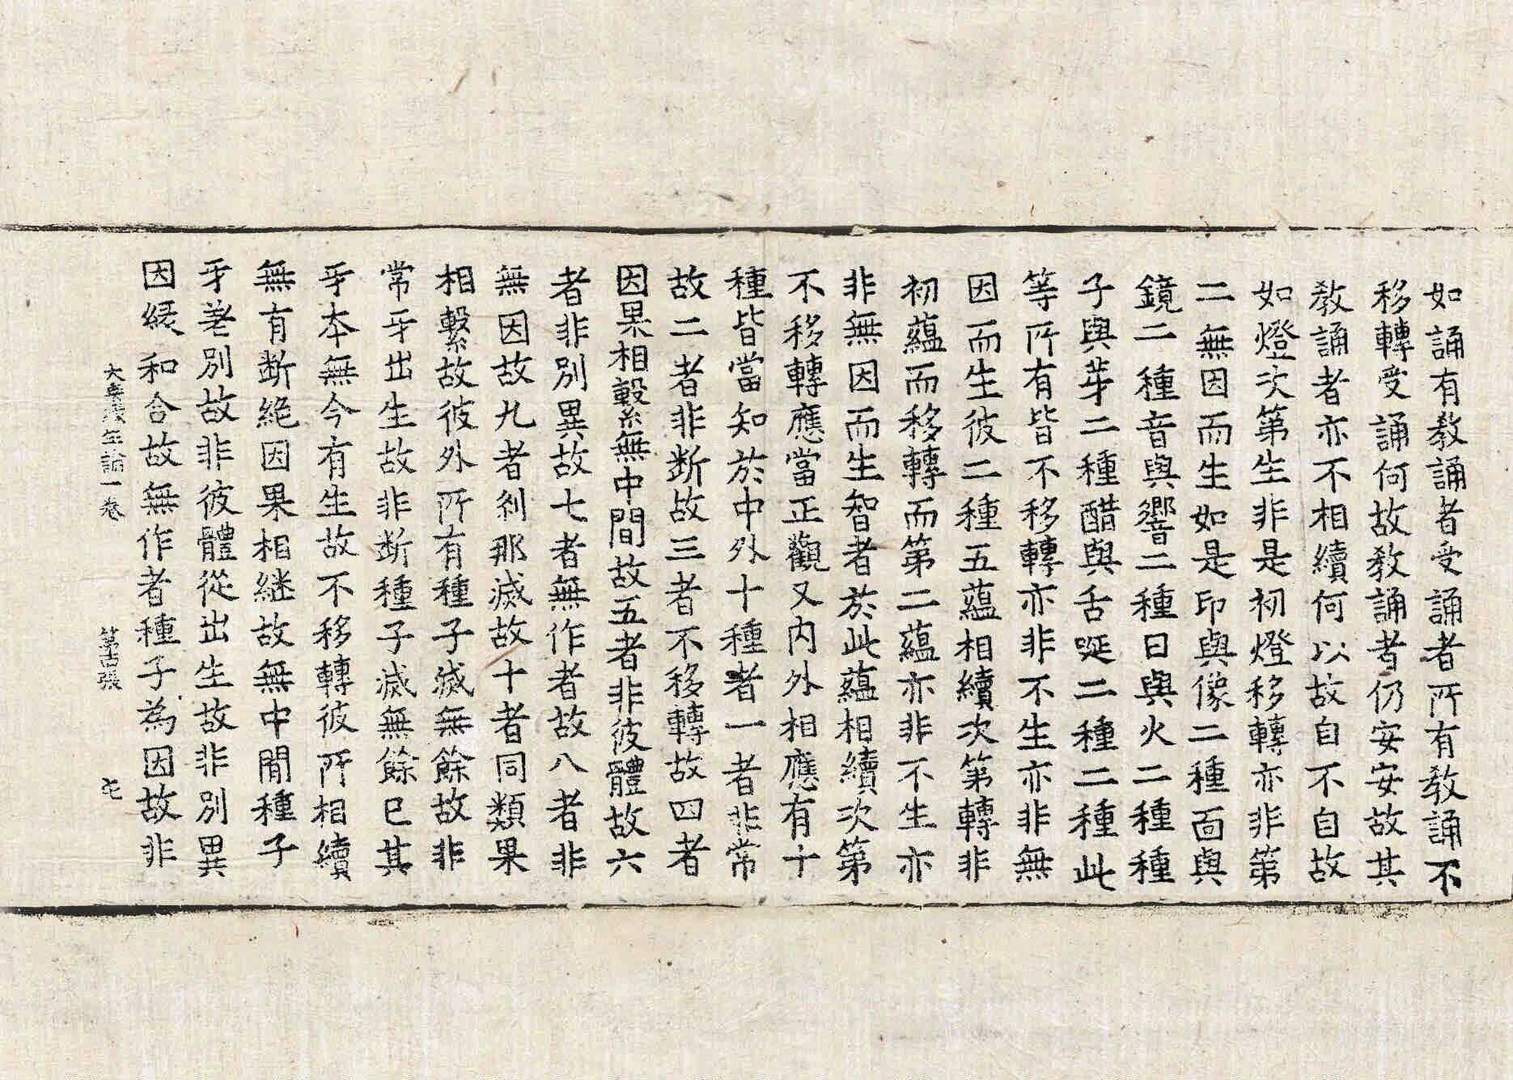 如誦有教誦者受誦者所有教誦不
移轉受誦何故教誦者仍安安故其
教誦者亦不相續何以故自不自故
如燈次第生非是初燈移轉亦非第
二無因而生如是印與像二種面與
鏡二種音與響二種日與火二種種
子與芽二種醋與舌唌二種二種此
等所有皆不移轉亦非不生亦非無
因而生彼二種五蘊相續次第轉非
初蘊而移轉而第二蘊亦非不生亦
非無因而生智者於此蘊相續次第
不移轉應當正觀又內外相應有十
種皆當知於中外十種者一者非常
故二者非斷故三者不移轉故四者
因果相繫無中間故五者非彼體故六
者非別異故七者無作者故八者非
無因故九者剎那滅故十者同類果
相繫故彼外所有種子滅無餘故非
常牙出生故非斷種子滅無餘已其
牙本無今有生故不移轉彼所相續
無有斷絕因果相継故無中間種子
牙差別故非彼體從出生故非別異
因緩和合故無作者種子為因故非
大乘緣生論一卷 第十張